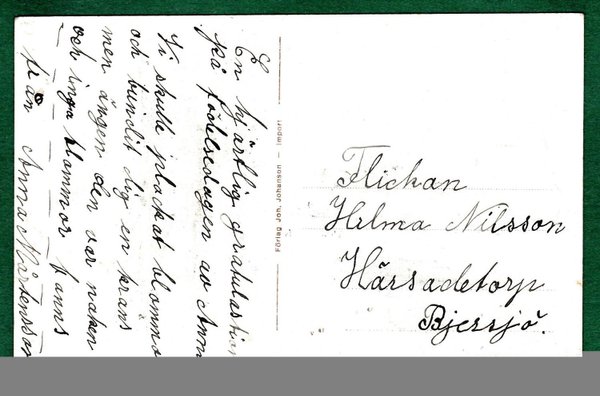 En hjärtlig gratulation
på födelsedagen av Anna
Vi skulle plockat blommor
och bundit dig en krans
men ängen den var naken
och inga blommor fanns
från Anna Mårtensson
Förlag Joh. Johanson — Import
Flickan
Hilma Nilsson
Härsadetorp
Bjersjö.